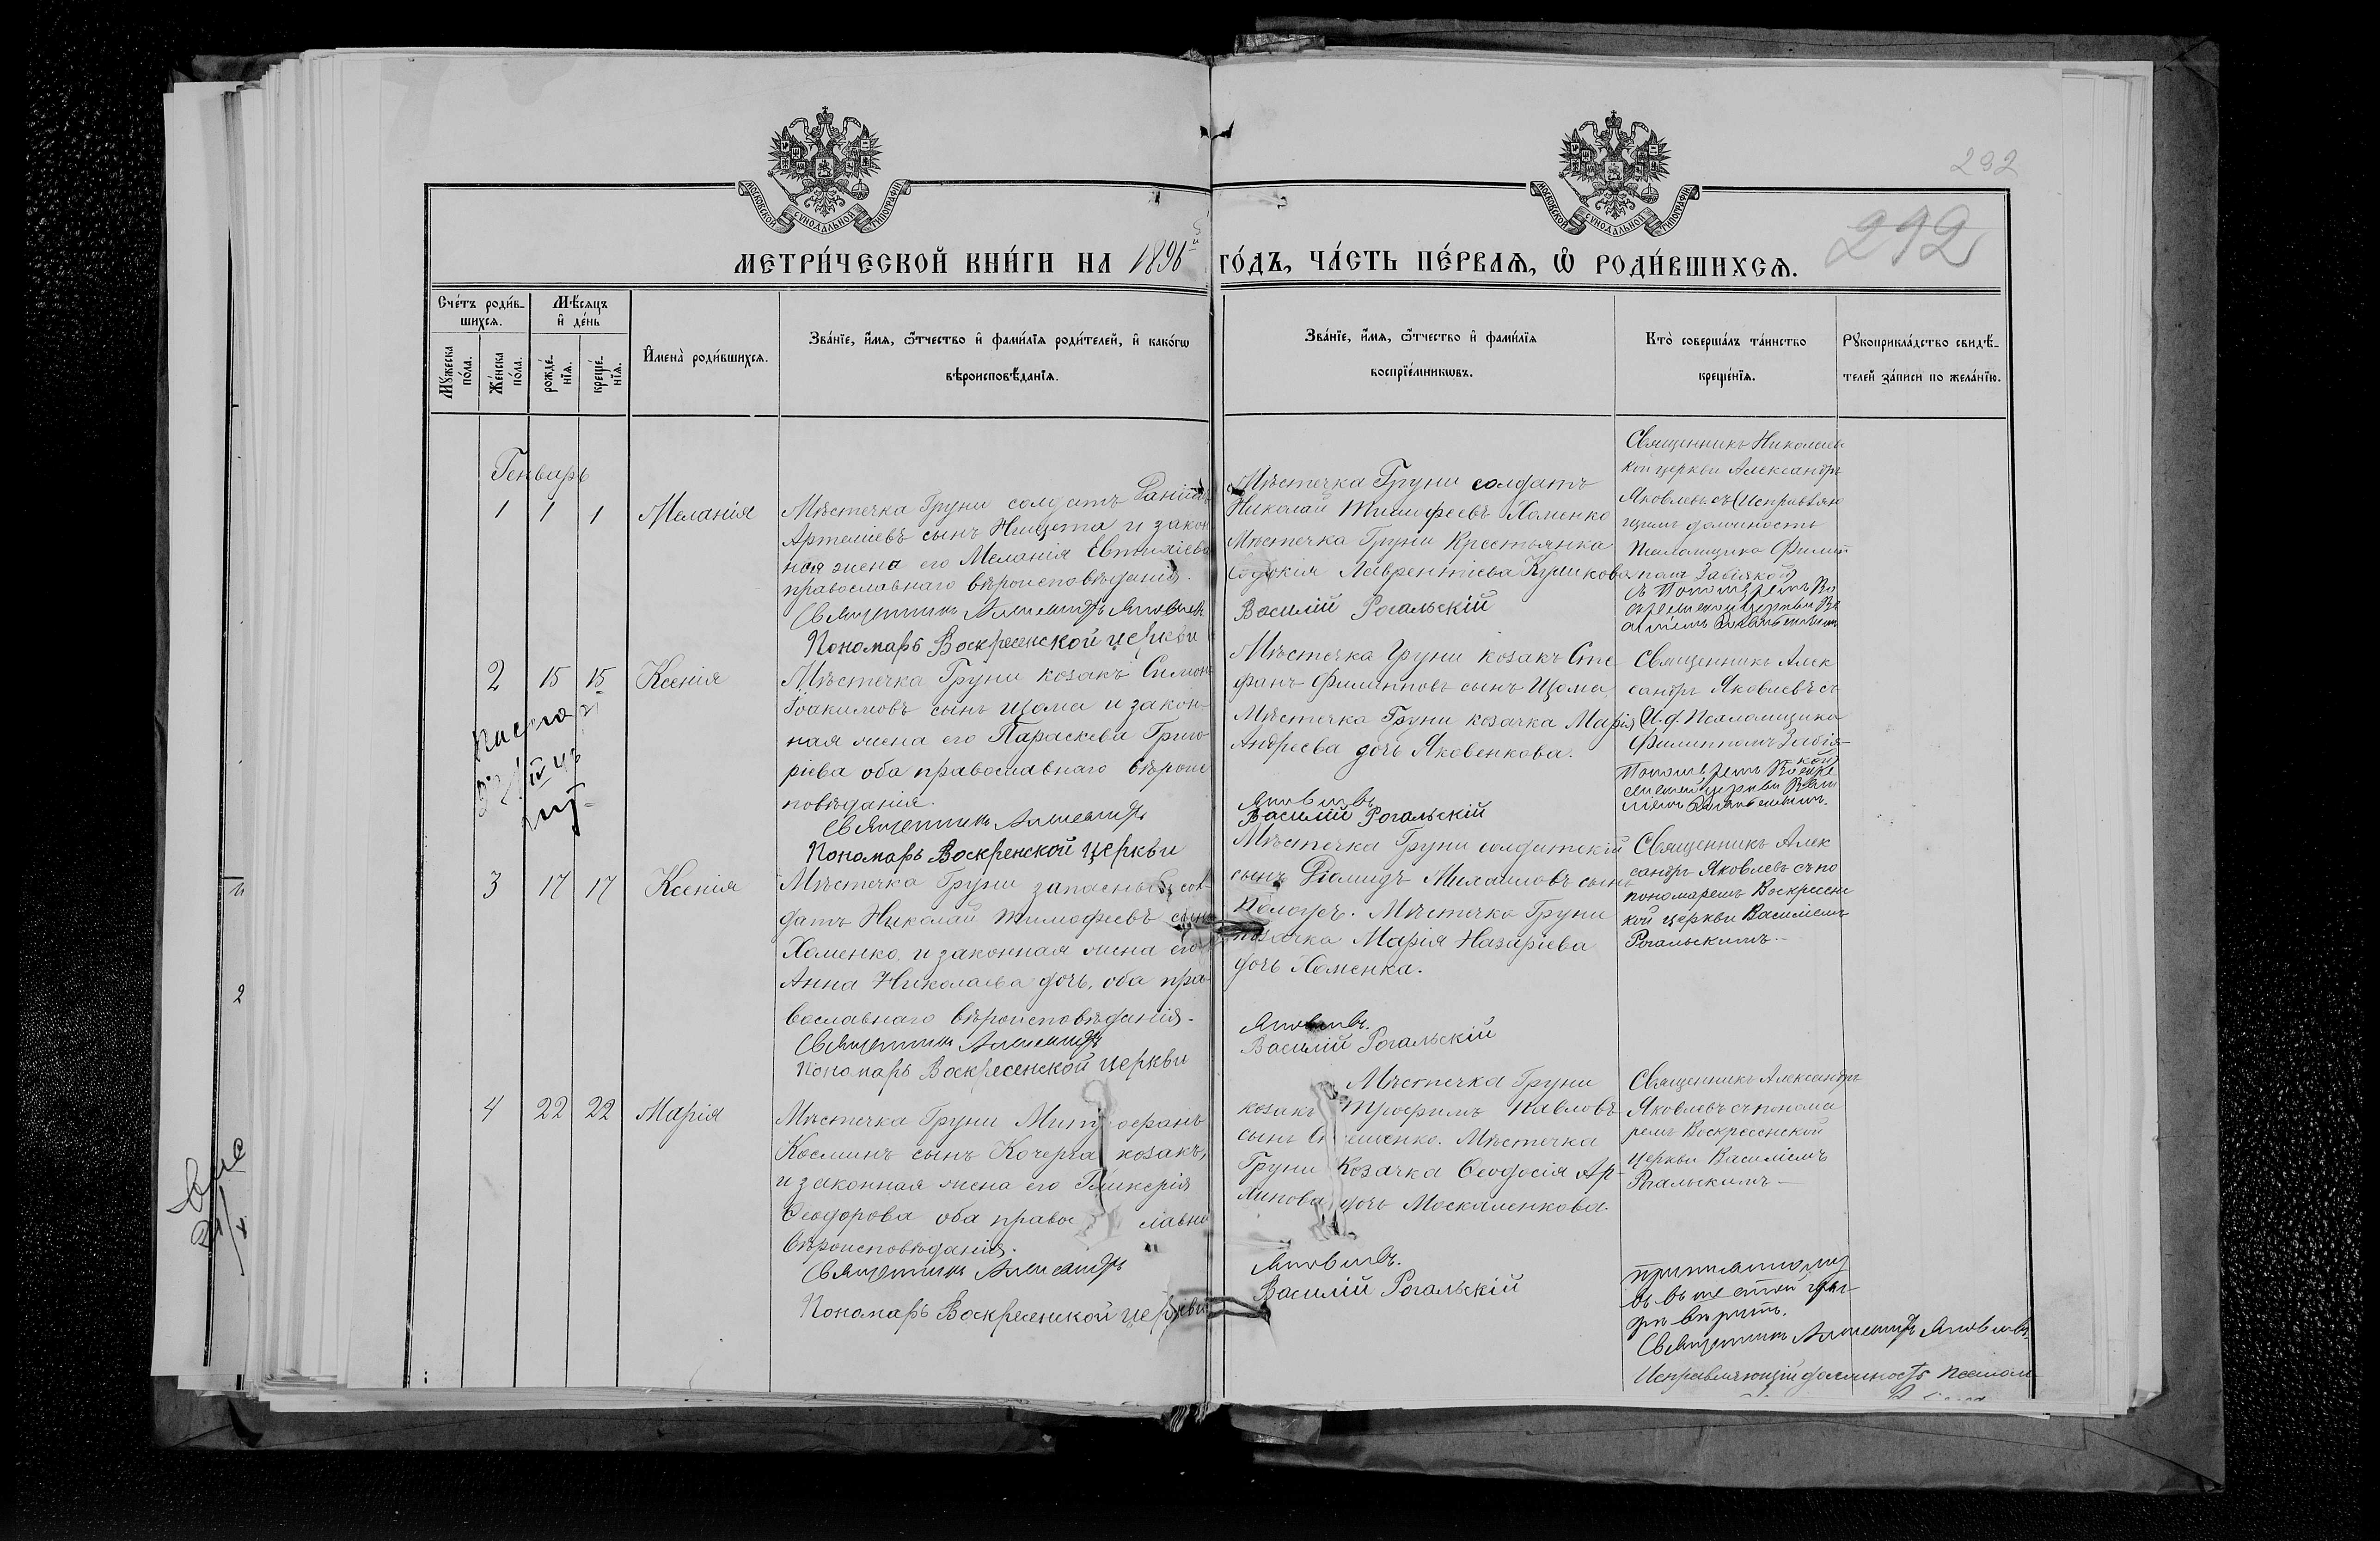 292
МОСКОВСКОЙ СѴНОДАЛЬНОЙ ТИПОГРАФІИ
МОСКОВСКОЙ СѴНОДАЛЬНОЙ ТИПОГРАФІИ
292
МЕТРИ́ЧЕСКОЙ КНИ́ГИ НА 1896й ГО́ДЪ, ЧА́СТЬ ПЕ́РВАѦ, Ѡ҆ РОДИ́ВШИХСѦ.
Сче́тъ роди́в-
шихсѧ.
Мꙋ́жеска по́ла.
Же́нска по́ла.
Мѣ́сѧцъ
и҆ де́нь
рожде́-
нїѧ.
креще́-
нїѧ.
И҆мена̀ роди́вшихсѧ.
Зва́нїе, и҆́мѧ, ѻ҆́тчество и҆ фами́лїѧ роди́телей, и҆ како́гѡ
вѣроисповѣ́данїѧ.
Зва́нїе, и҆́мѧ, ѻ҆́тчество и҆ фами́лїѧ
воспрїе́мникѡвъ.
Кто̀ соверша́лъ та́инство
креще́нїѧ.
Рꙋкоприкла́дство свидѣ́-
телей за́писи по жела́нїю.
Генварь
1 1 1 Меланія
Мѣстечка Груни солдатъ Даніилъ
Артеміевъ сынъ Нищета и закон
ная жена его Меланія Евтихіева
православнаго вѣроисповѣданія.
Священникъ Александръ Яковлевъ
Пономарь Воскресенской церкви
Мѣстечка Груни солдатъ
Николай Тимофеевъ Хоменко
Мѣстечка Груни Крестьянка
Евдокія Лаврентіева Куликова
Василій Рогальскій
Священникъ Николаев
кой церкви Александръ
Яковлевъ съ (Исправляю
щимъ должность
Псаломщика Филип
помъ Забіякой)
2 15 15 Ксенія
Мѣстечка Груни козакъ Симонъ
Іоакимовъ сынъ Щома и закон-
ная жена его Параскева Григо
ріева оба православнаго вѣроис
повѣданія.
Священникъ Александръ
Пономарь Воскренской церкви
Мѣстечка Груни козакъ Сте
фанъ Филипповъ сынъ Щома,
Мѣстечка Груни козачка Марія
Андреева дочь Яковенкова.
Яковлевъ.
Василій Рогальскій
Священникъ Алек
сандръ Яковлевъ съ
И. д. Псаломщика
Филиппомъ Забія-
кой)
3 17 17 Ксенія
Мѣстечка Груни запасный сол-
датъ Николай Тимофеевъ сынъ
Хоменко, и законная жена его
Анна Николаева дочь, оба пра-
вославнаго вѣроисповѣданія.
Священникъ Александръ
Пономарь Воскресенской церкви
Мѣстечка Груни солдатскій
сынъ Діомидъ Михаиловъ сынъ
Мѣстечка Груни
козачка Марія Назаріева
дочь Хоменка.
Яковлевъ.
Василій Рогальскій
Священникъ Алек
сандръ Яковлевъ съ по
пономаремъ Воскресенс
кой церкви Василіемъ
Рогальскимъ.-
4 22 22 Марія
Мѣстечка Груни Митрофанъ
Косминъ сынъ Кочерга козакъ,
и законная жена его Гликерія
Ѳеодорова оба православна
вѣроисповѣданія.
Священникъ Александръ
Пономарь Воскресенской церкви
Мѣстечка Груни
козакъ Трофимъ Павловъ
сынъ Мѣстечка
Груни Козачка Ѳеодосія Ар-
дочь Москаленкова.
Яковлевъ.
Василій Рогальскій
Священникъ Александръ
Яковлевъ съ понома
ремъ Воскресенской
церкви Василіемъ
Рогальскимъ
Священникъ Александръ Яковлевъ
Исправляющій должность псалом
2